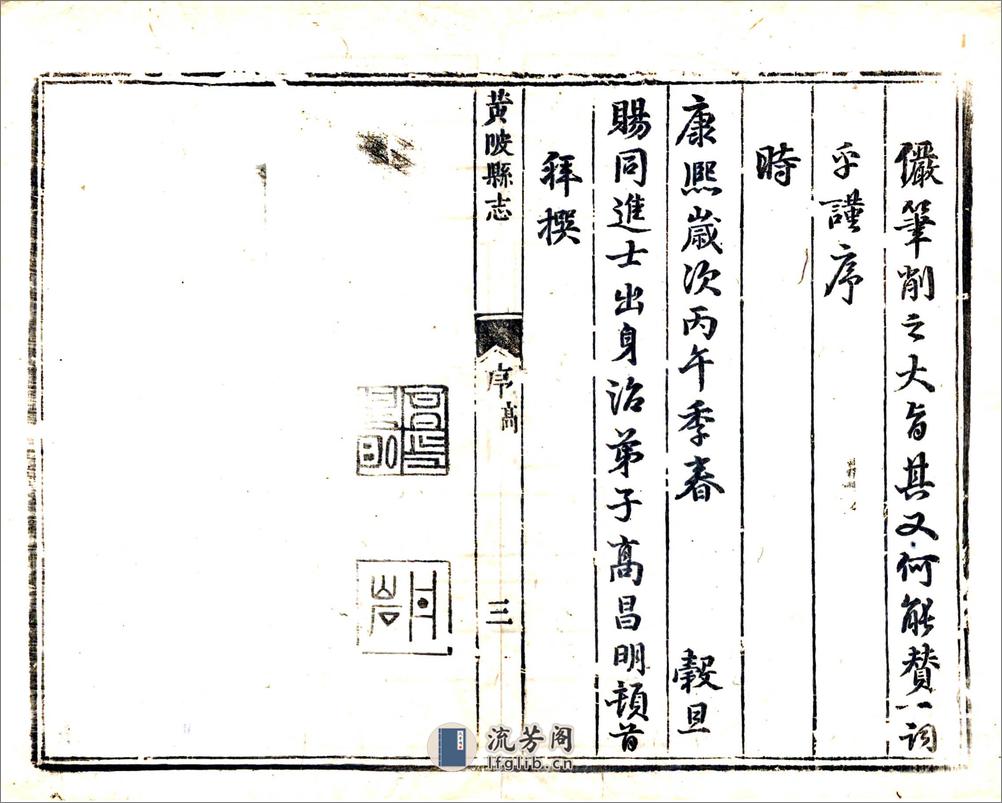 儼筆削之大旨其又何能贊一詞
乎謹序
時
康熙歲次丙午季春 穀旦
賜同進士出身治弟子高昌明頓首
拜撰
黃陂縣志
序高
三
流芳阁
lfglib.cn